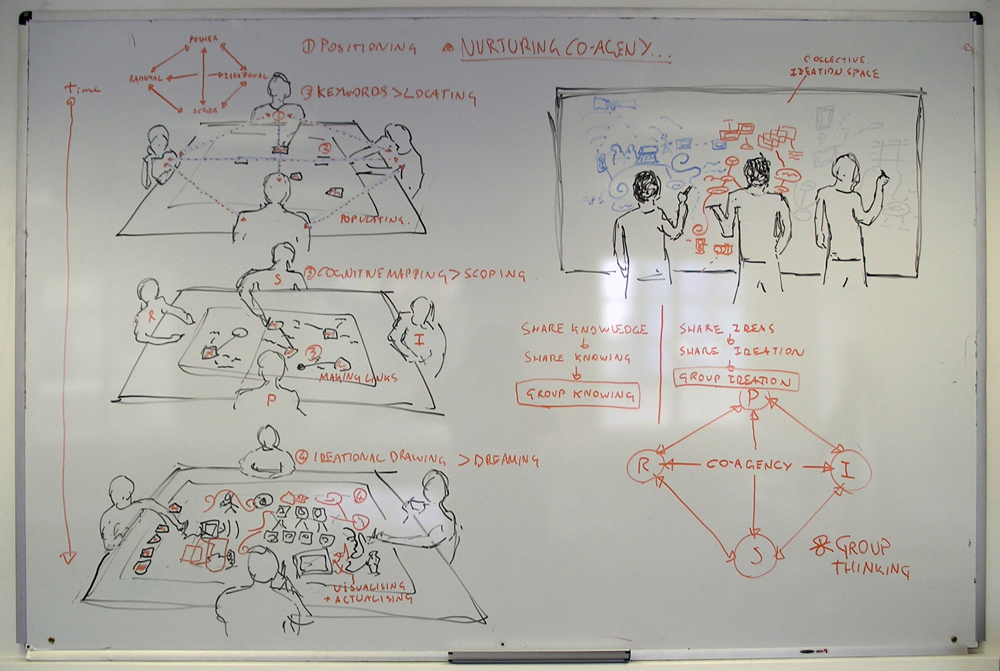 ① POSITIONING
* NURTURING CO-AGENY...
POWER
RATIONAL
time
② KEYWORDS > LOCATING
②
POPULATING.
③ COGNITIVE MAPPING > SCOPING
S
R
I
③
MAKING LINKS
P
④ IDEATIONAL DRAWING > DREAMING
④
VISUALISING
+ ACTUALISING
COLLECTIVE
IDEATION SPACE
SHARE KNOWLEDGE
SHARE KNOWING
GROUP KNOWING
SHARE IDEAS
SHARE IDEATION
GROUP IDEATION
P
R
CO-AGENCY
I
S
* GROUP
THINKING